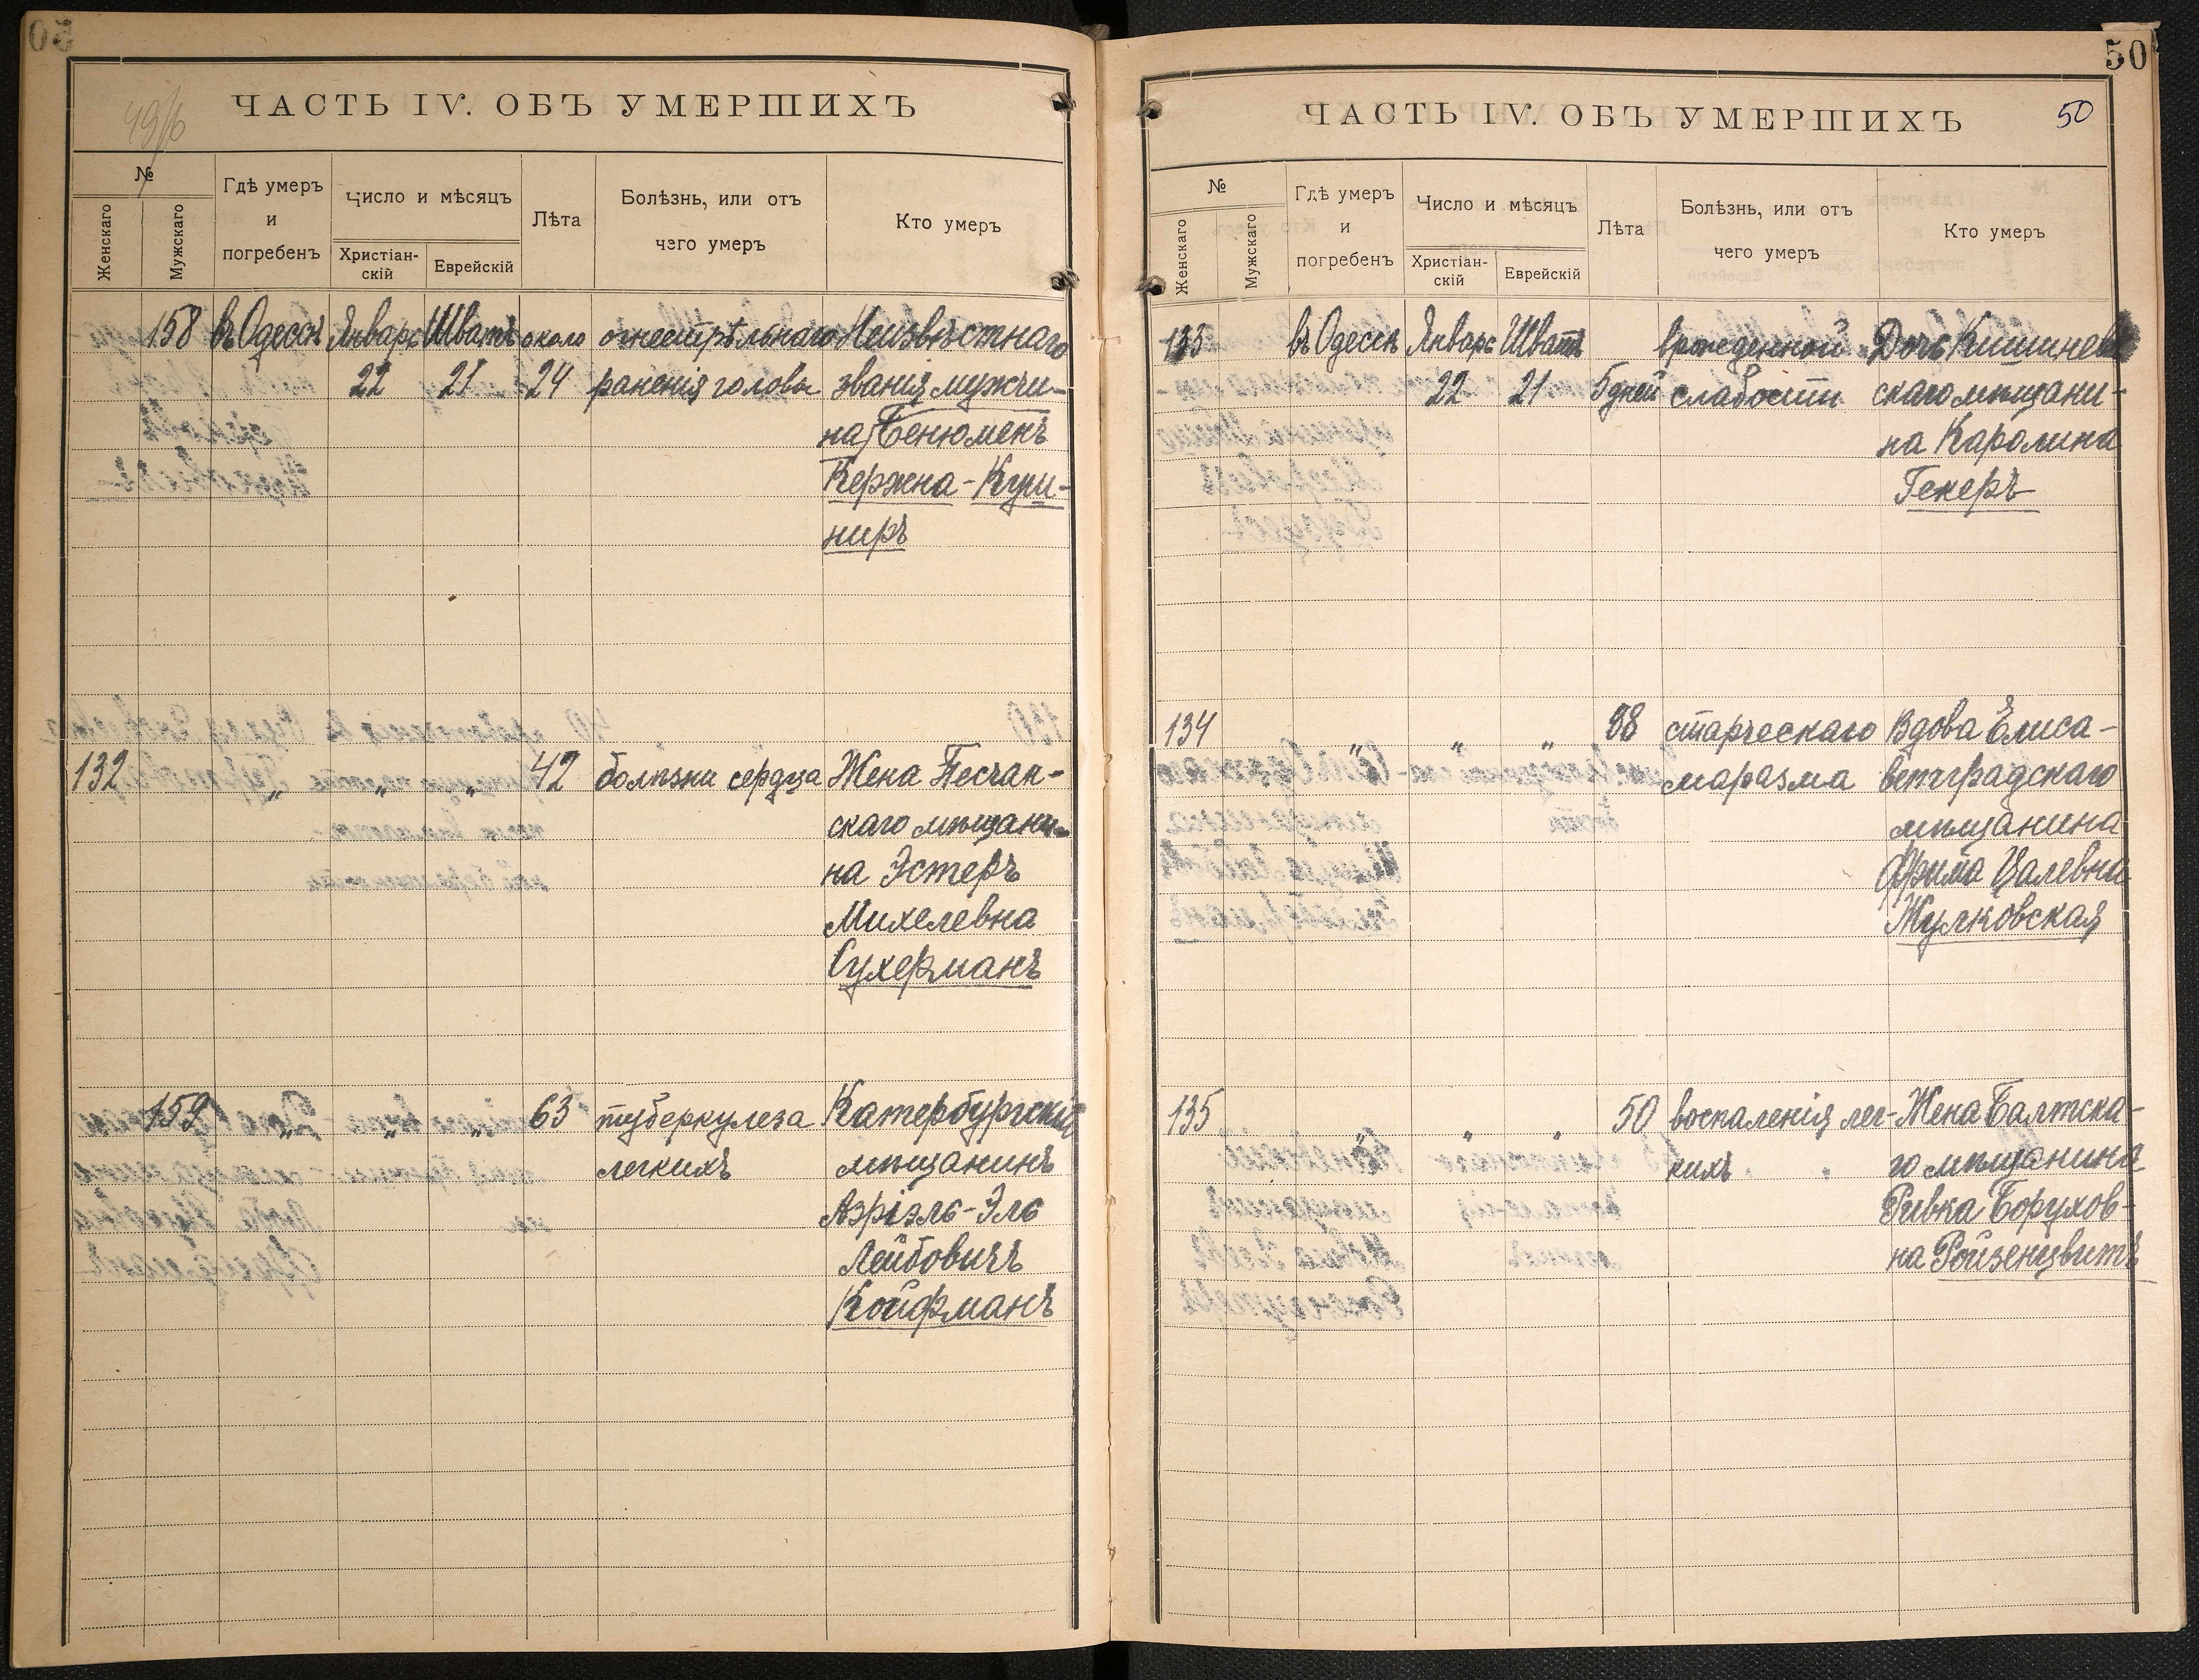 50
ЧАСТЬ IV. ОБЪ УМЕРШИХЪ
№
Женскаго
Мужскаго
Гдѣ умеръ
и
погребенъ
Число и мѣсяцъ
Христіан-
скій
Еврейскій
Лѣта
Болѣзнь, или отъ
чего умеръ
Кто умеръ
158 въ Одессѣ Январь Шватъ около огнестрѣльнаго Неизвѣстнаго
22 21 24 раненія головы званія мужчи-
на Бенюменъ
Кержна-Куш-
ниръ
132 " " " 42 болѣзни сердца Жена Песчан-
скаго мѣщани-
на Эстеръ
Михелевна
Сухерманъ
159 " " " 63 туберкулеза Катербургскій
легкихъ мѣщанинъ
Аэріэль-Эль
Лейбовичъ
Койфманъ
50
ЧАСТЬ IV. ОБЪ УМЕРШИХЪ 50
№
Женскаго
Мужскаго
Гдѣ умеръ
и
погребенъ
Число и мѣсяцъ
Христіан-
скій
Еврейскій
Лѣта
Болѣзнь, или отъ
чего умеръ
Кто умеръ
133 въ Одессѣ Январь Шватъ врожденной Дочь Кишинев
22 21 5 дней слабости скаго мѣщани-
на Каролина
Гекеръ
134 " " " 88 старческаго Вдова Елиса-
маразма ветградскаго
мѣщанина
Фрима Цалевна
Жулковская
135 " " " 50 воспаленія лег- Жена Балтска-
кихъ го мѣщанина
Ривка Борухов-
на Ройзенцвитъ